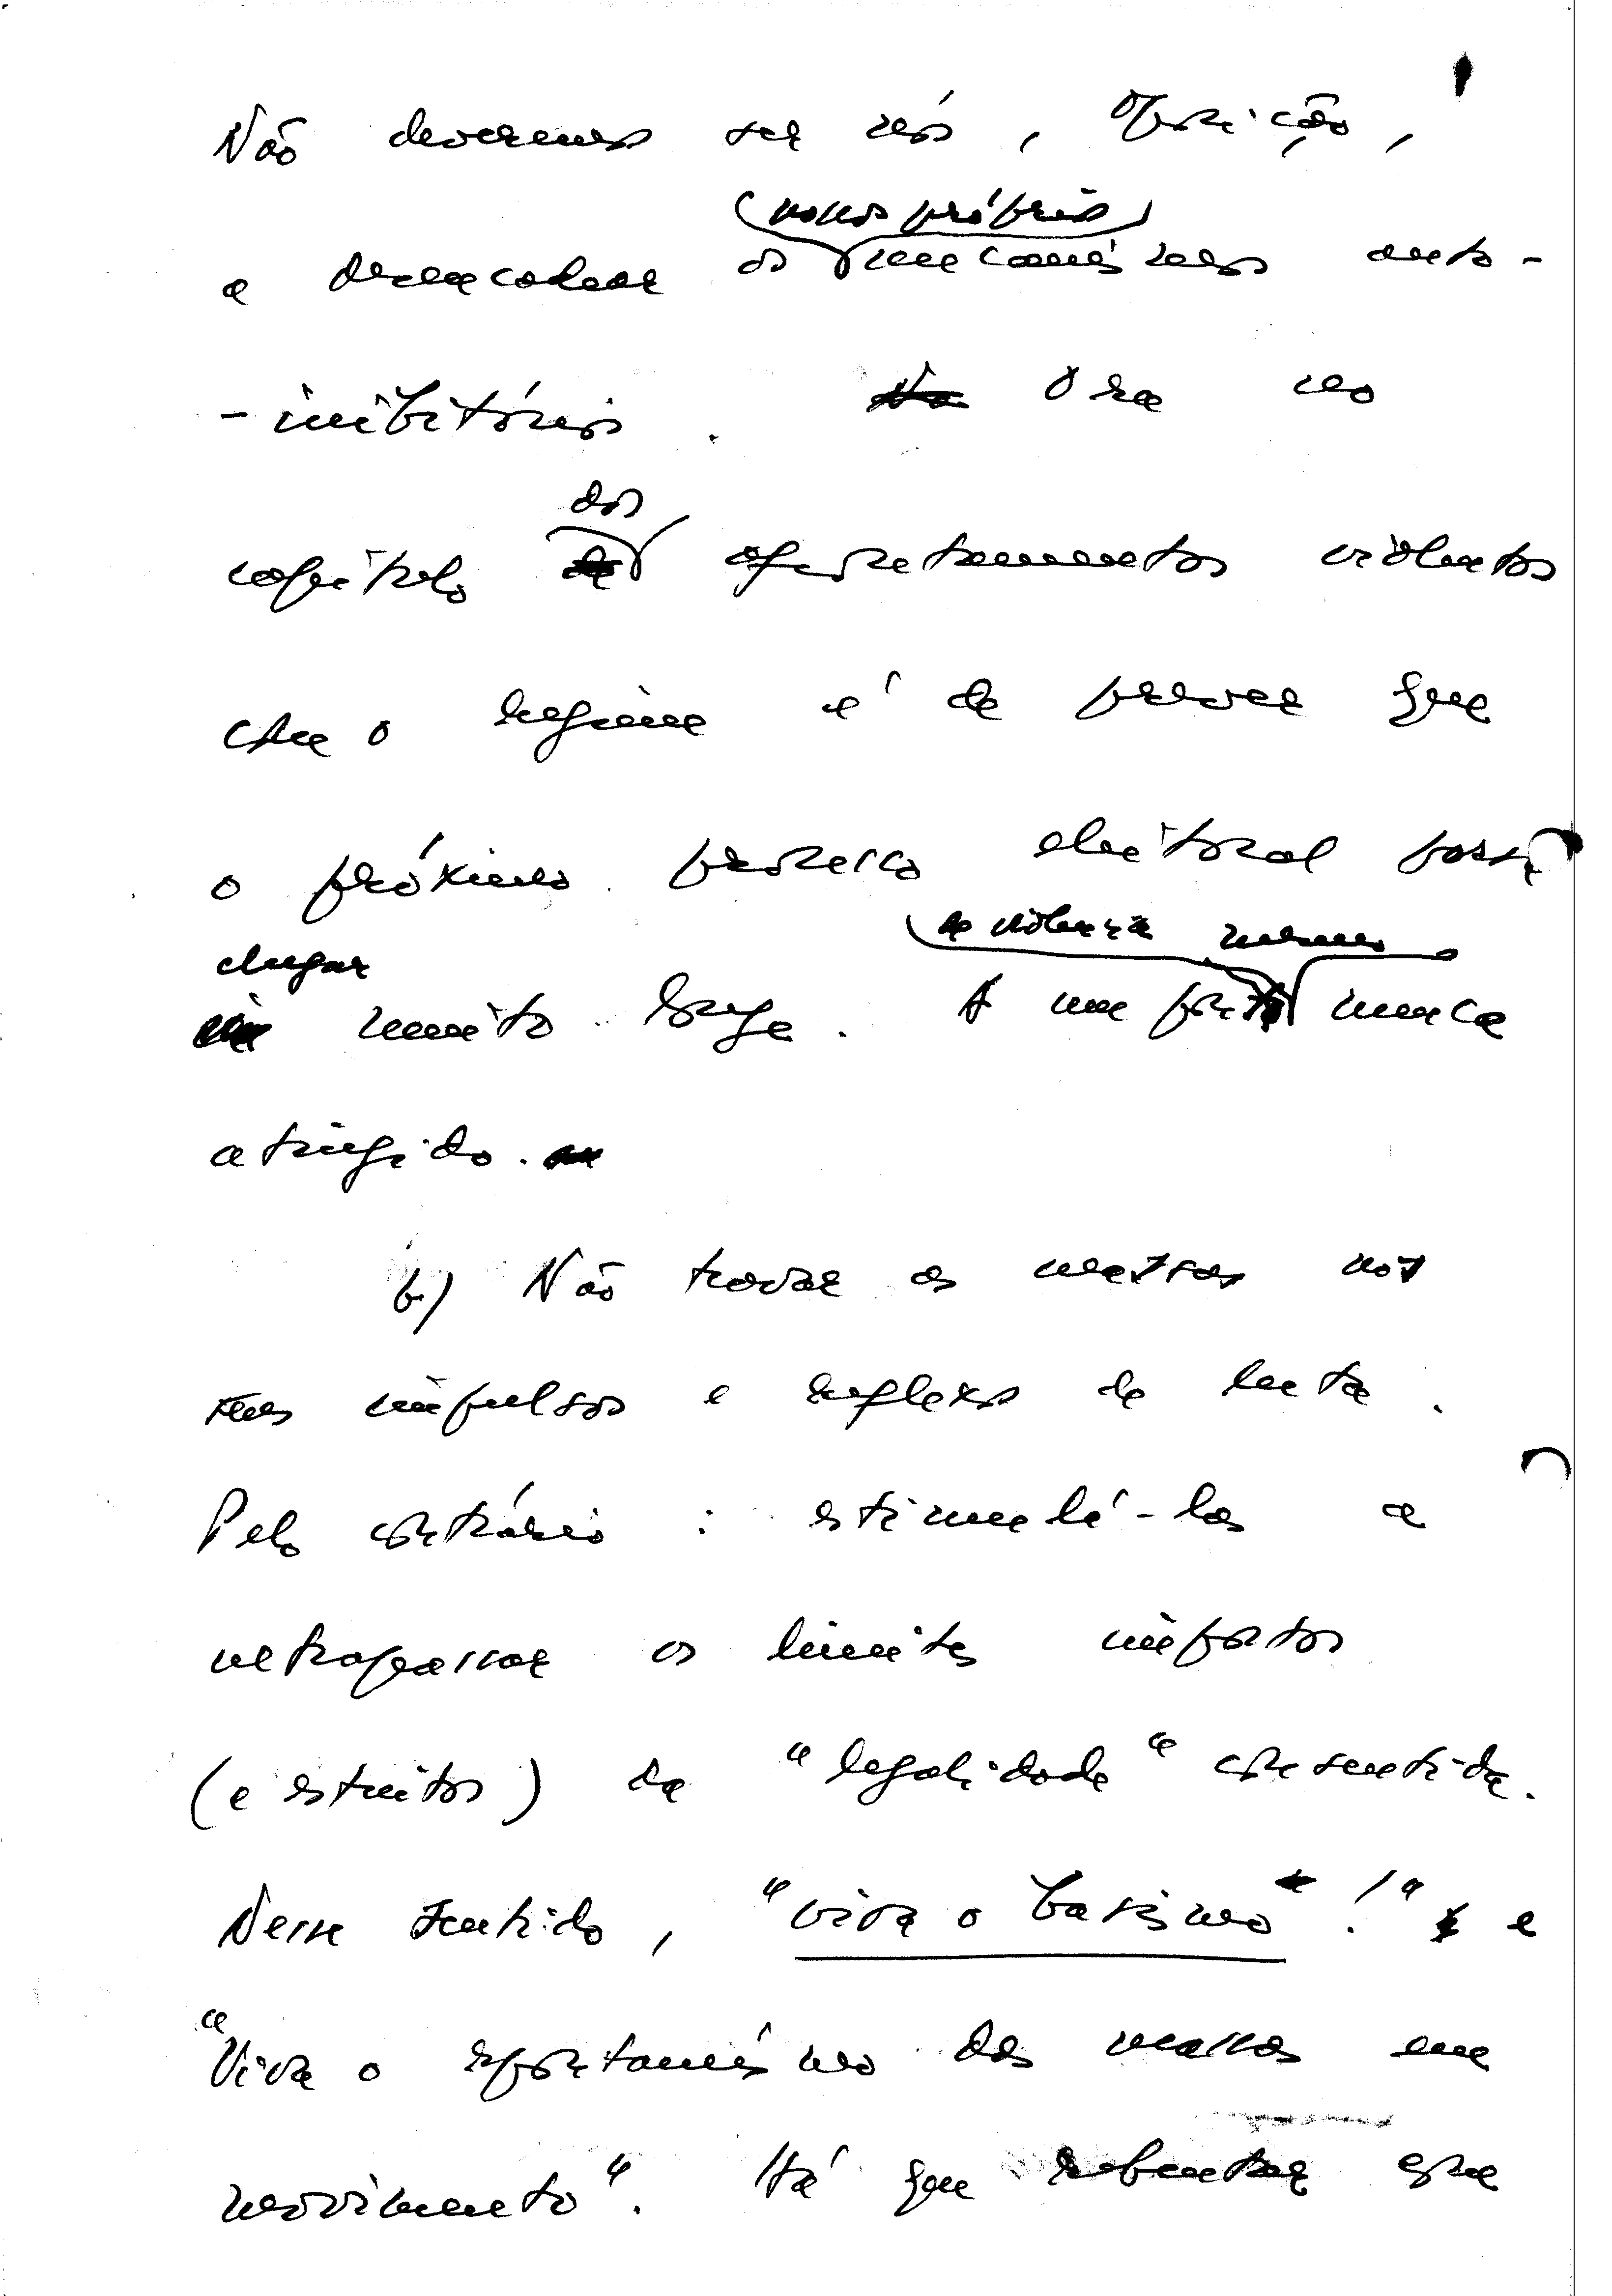 Não devemos ser nós, oposição,
a desencadear os (nossos próprios) mecanismos auto-
-inibitórios. Ora no
capítulo dos afrontamentos violentos
com o regime é de prever que
o próximo período eleitoral possa
chegar muito longe. A um ponto de violência mesmo nunca
atingido.
b) Não travar as massas nos
seus impulsos e reflexos de luta.
Pelo contrário: estimulá-las a
ultrapassar os limites impostos
(e estreitos) da "legalidade" consentida.
Nesse sentido, "viva o basismo!" e
"Viva o espontaneísmo das massas em
movimento". Há que rebentar essa